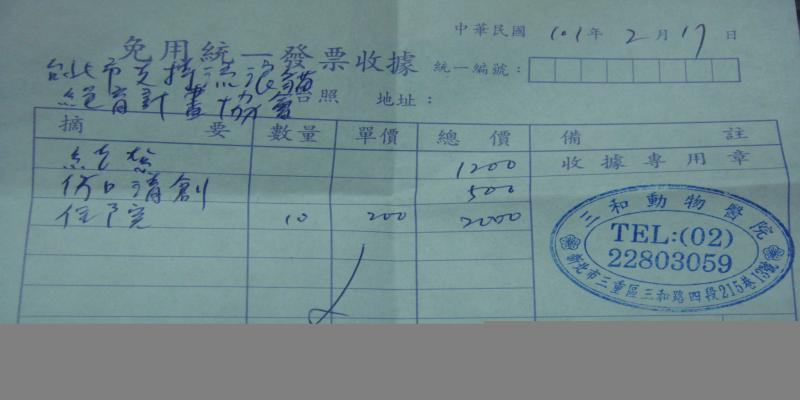 中華民國 101年 2月 17日
免用統一發票收據
台北市支持流浪貓
絕育計畫協會 台照
統一編號：
地址：
摘要 數量 單價 總價 備註
1200 收據專用章
傷口清創 500
住院 10 200 2000
三和動物醫院
TEL:(02)
22803059
新北市三重區三和路四段215巷13號